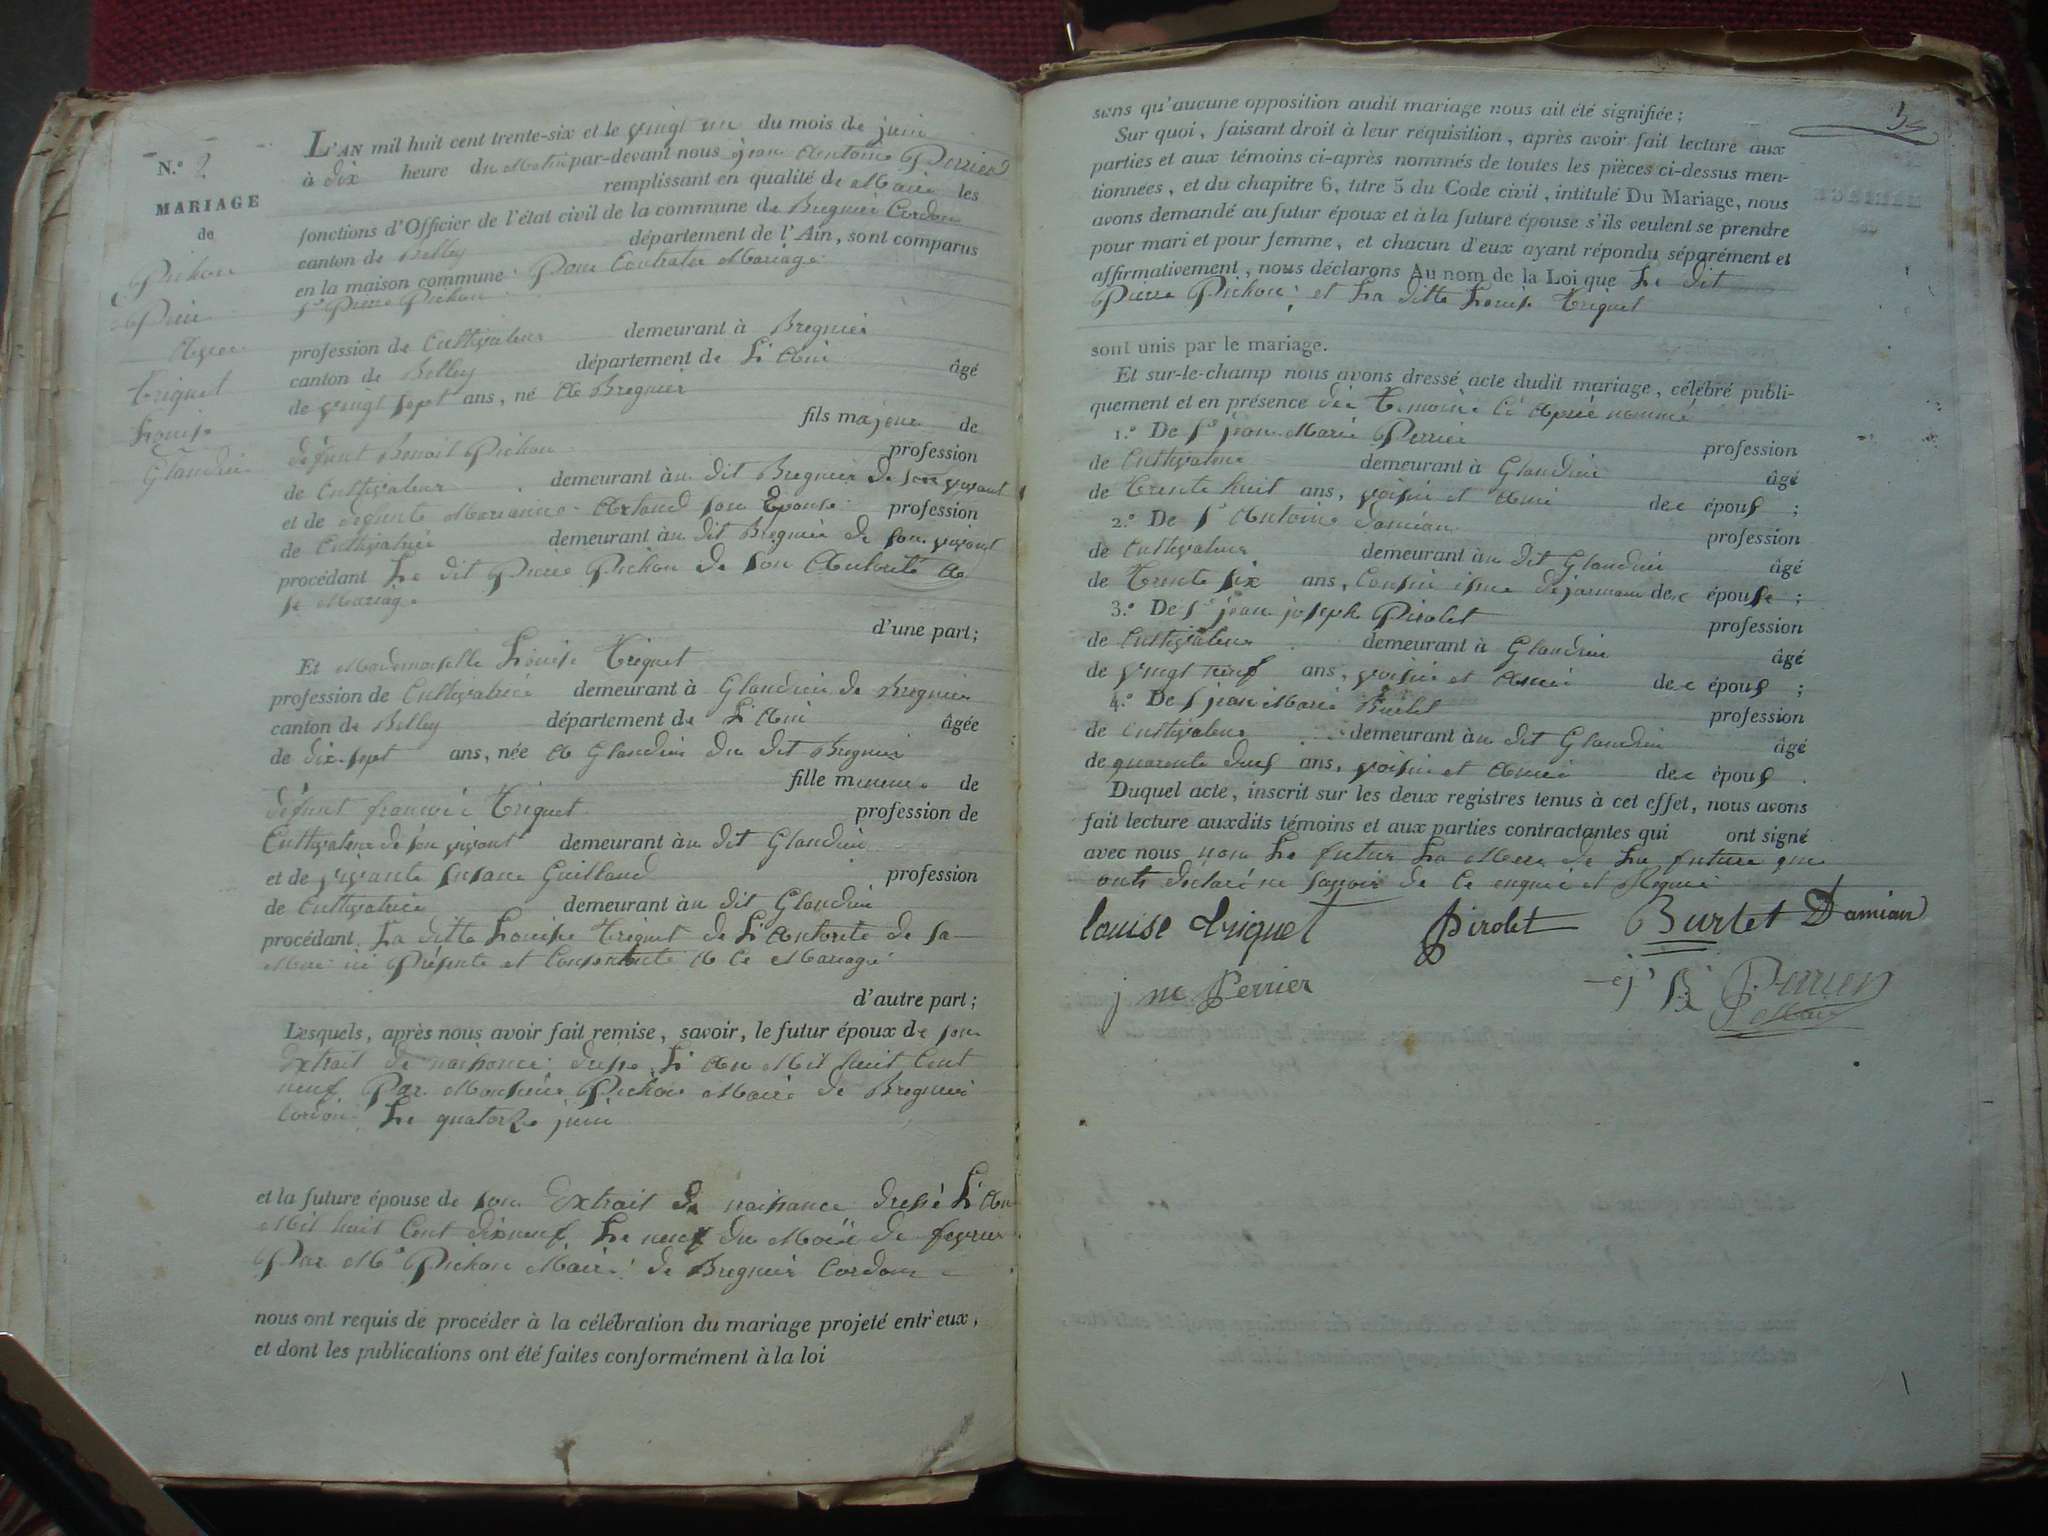 N.º 2
MARIAGE
de
Pichon
Pierre
Avec
Triquet
Louise
Glandieu
L'AN mil huit cent trente-six et le vingt un du mois de juin
à dix heure du Matin par-devant nous jean Antoine Perrier
remplissant en qualité de Maire les
fonctions d'Officier de l'état civil de la commune de Bregnier Cordon
canton de Belley département de l'Ain, sont comparus
en la maison commune Pour Contrater Mariage
Sr Pierre Pichon
profession de Cultivateur demeurant à Bregnier
canton de Belley département de L'Ain âgé
de vingt sept ans, né A Bregnier
fils majeur de
défunt Benoit Pichon profession
de Cultivateur demeurant à u dit Bregnier de son vivant
et de defunte Marianne Arland son Epouse profession
de Cultivatrice demeurant à u dit Bregnier de son vivant
procédant Le dit Pierre Pichon de son Autorité A
se Mariage
d'une part;
Et Mademoiselle Louise Triquet
profession de Cultivatrice demeurant à Glandieu de Bregnier
canton de Belley département de L'Ain âgée
de dix-sept ans, née A Glandieu du dit Bregnier
fille mineure de
défunt françois Triquet profession de
Cultivateur de son vivant demeurant à u dit Glandieu
et de vivante Susane Guillaud profession
de Cultivatrice demeurant à u dit Glandieu
procédant La ditte Louise Triquet de L'Autorité de sa
Mere ici Présente et Consentente A Ce Mariage
d'autre part;
Lesquels, après nous avoir fait remise, savoir, le futur époux de son
Extrait de naissance dressé L'An Mil huit Cent
neuf Par Monsieur Pichon Maire de Bregnier
Cordon Le quatorze juin
et la future épouse de son Extrait de naissance dressé L'An
Mil huit Cent dixneuf Le neuf du Mois de fevrier
Par Mr Pichon Maire de Bregnier Cordon
nous ont requis de procéder à la célébration du mariage projeté entr'eux,
et dont les publications ont été faites conformément à la loi
sans qu'aucune opposition audit mariage nous ait été signifiée;
Sur quoi, faisant droit à leur réquisition, après avoir fait lecture aux
parties et aux témoins ci-après nommés de toutes les pièces ci-dessus men-
tionnées, et du chapitre 6, titre 5 du Code civil, intitulé Du Mariage, nous
avons demandé au futur époux et à la future épouse s'ils veulent se prendre
pour mari et pour femme, et chacun d'eux ayant répondu séparément et
affirmativement, nous déclarons Au nom de la Loi que Le dit
Pierre Pichon et La ditte Louise Triquet
sont unis par le mariage.
Et sur-le-champ nous avons dressé acte dudit mariage, célébré publi-
quement et en présence des Temoins Ci Après nommé
1.º De Sr jean Marie Perrier profession
de Cultivateur demeurant à Glandieu âgé
de Trente huit ans, voisin et Ami des épous ;
2.º De Sr Antoine Damian profession
de Cultivateur demeurant à u dit Glandieu âgé
de Trente six ans, Cousin isue dejermain des épouse ;
3.º De Sr jean joseph Pirolet profession
de Cultivateur demeurant à Glandieu âgé
de vingt neuf ans, voisin et Ami des épous ;
4.º De Sr jean Marie Burlet profession
de Cultivateur demeurant à u dit Glandieu âgé
de quarente deus ans, voisin et Ami des épous .
Duquel acte, inscrit sur les deux registres tenus à cet effet, nous avons
fait lecture auxdits témoins et aux parties contractantes qui ont signé
avec nous non Le futur La Mere de La future que
onts declaré ne savoir de Ce enquis et Requis
louise triquet Pirolet Burlet Damian
j m Perrier Perrier
Maire